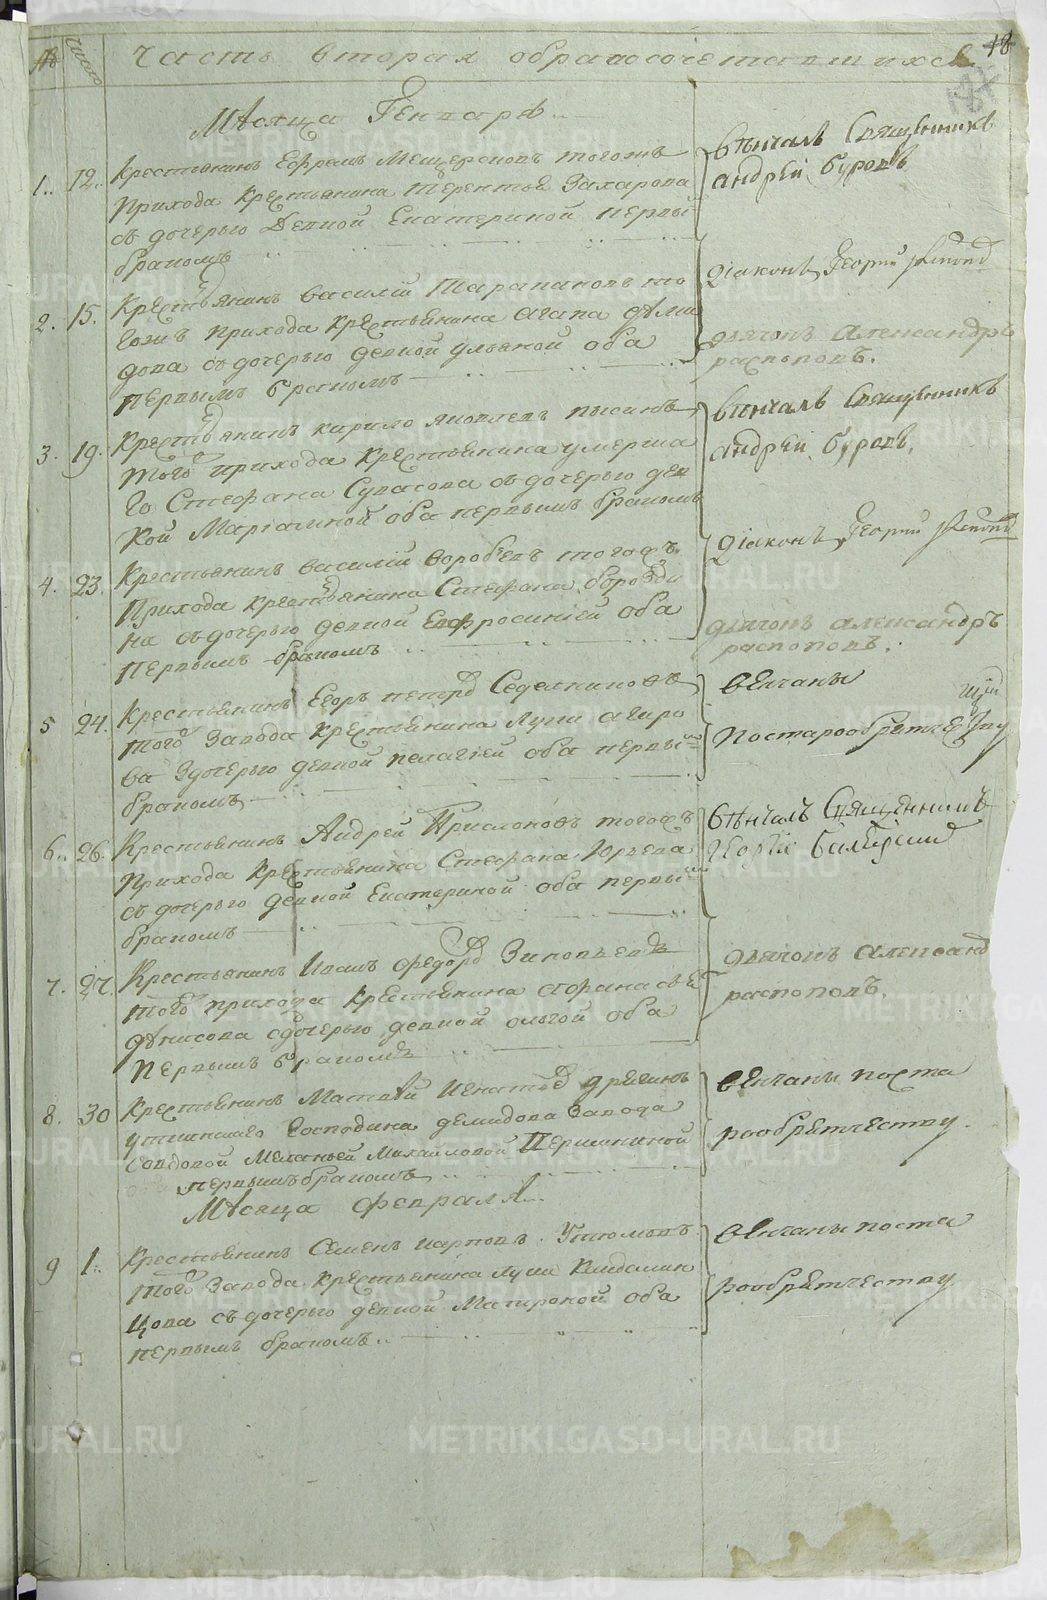 № число часть вторая о бракосочетавшихся 48
187
Мѣсяца Генваря
1. 12. Крестьянинъ Ефремъ Мещеряковъ тогожъ
прихода крестьянина Терентья Захарова
съ дочерью девкой Екатериной первы
бракомъ
вѣнчалъ Священникъ
андрей буровъ
2. 15. Крестьянинъ василий Таранановъ то
гожъ прихода крестьянина агапа деми
дова съ дочерью девкой ульяной оба
первымъ бракомъ
діаконъ Георгий
дьячокъ александръ
распоповъ.
3. 19. Крестьянинъ кирило яковлевъ
того прихода крестьянина умерша
го Стефана Супасова съ дочерью дев
кой Маріамной оба первымъ бракомъ
вѣнчалъ Священникъ
андрей буровъ.
4. 23. Крестьянинъ василий воробьевъ тогожъ
Прихода крестьянина Стефана бороди
на съ дочерью девкой Евфросинией оба
первымъ бракомъ
діаконъ Георгий
дьячокъ александръ
распоповъ.
5 24. Крестьянинъ Егоръ петровъ Седелниковъ
того завода крестьянина Луки
ва здочерью девкой пелагией оба первы
бракомъ
венчаны
постарообрятчеству
6. 26. Крестьянинъ Андрей Прислоновъ тогожъ
прихода крестьянина Стефана Юрьева
съ дочерью девкой Екатериной оба первы
бракомъ
вѣнчалъ Священникъ
Георгий
7. 27. Крестьянинъ Иванъ федоровъ Зиновьевъ
того прихода крестьянина
сдочерью девкой ольгой оба
первымъ бракомъ
дьячокъ александ
распоповъ.
8. 30 Крестьянинъ Матвѣй Игнатьевъ
господина демидова завода
совдовой Меланьей Михайловой Першиной
первымъ бракомъ
венчаны поста
рообрятчеству.
Мѣсяца февраля
9 1. Крестьянинъ Семенъ карповъ Утюмовъ
того завода крестьянина Луки
цова съ дочерью девкой Матроной оба
первымъ бракомъ
венчаны поста
рообрятчеству
METRIKI.GASO-URAL.RU